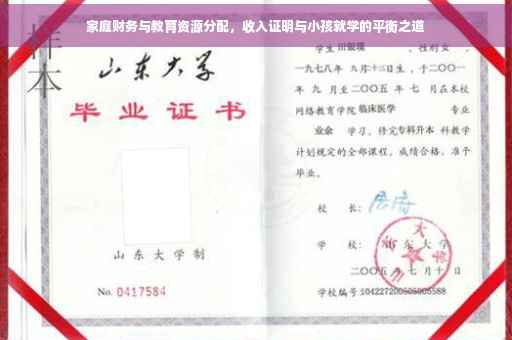 家庭财务与教育资源分配，收入证明与小孩就学的平衡之道
样本
山东大学
毕业证书
山东大学制
No. 0417584
学生
性别女，
一九七八年 九月十三日生，于二〇〇一
年 九 月至二〇〇五 年 七 月在本校
网络教育学院 临床医学 专业
业余 学习，修完专科升本 科教学
计划规定的全部课程，成绩合格，准予
毕业。
校 长：
学 校： 山东大学
二〇〇五 年 七 月 十 日
学校编号：